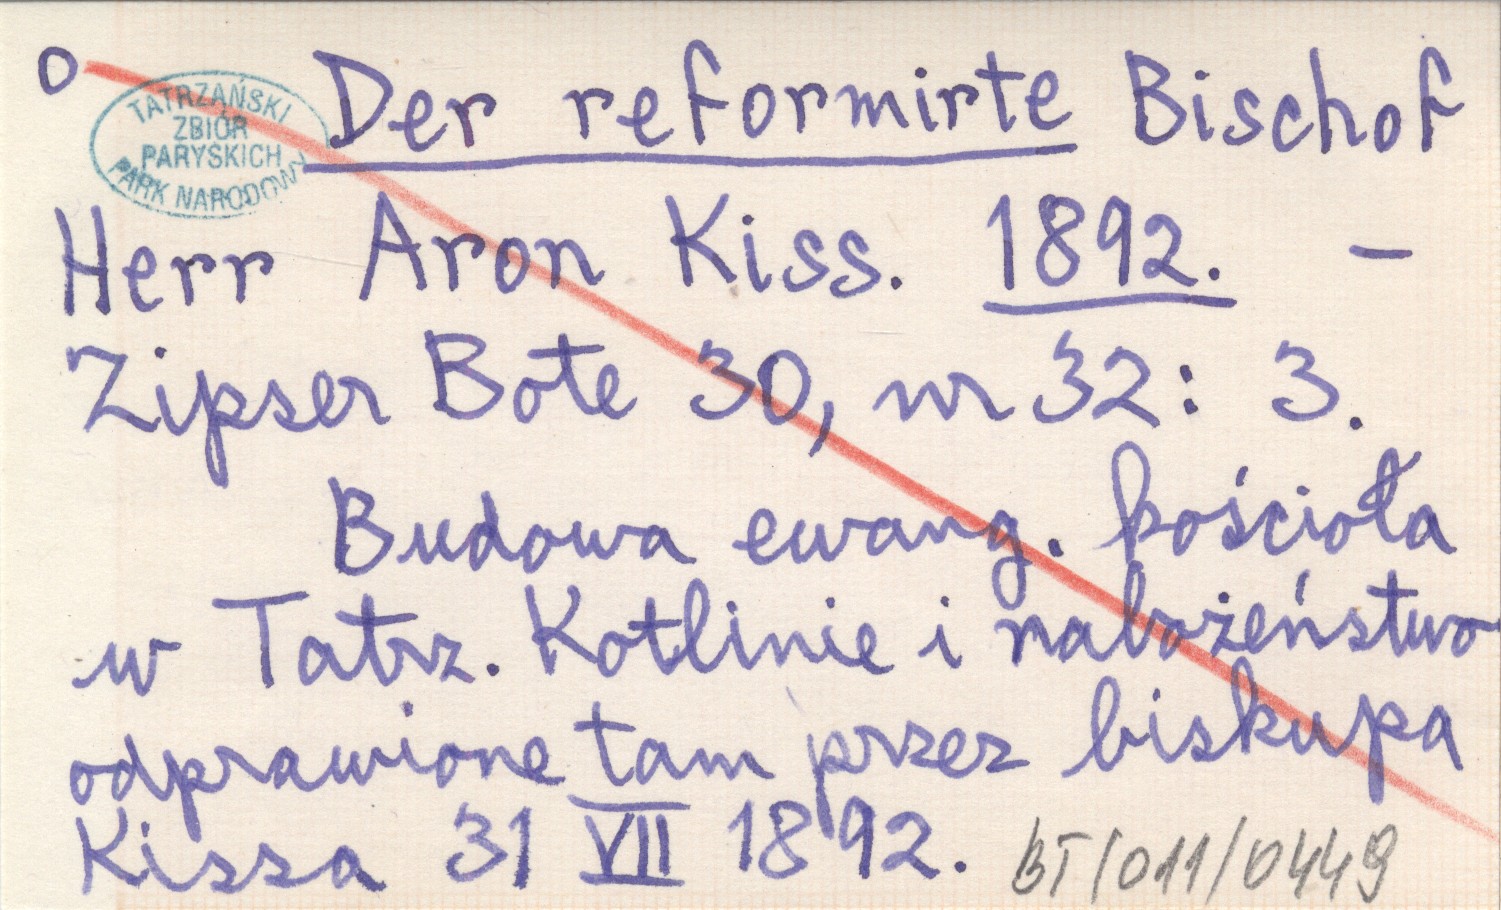 o
TATRZAŃSKI
ZBIÓR
PARYSKICH
PARK NARODOWY
Der reformirte Bischof
Herr Aron Kiss. 1892. –
Zipser Bote 30, nr 32: 3.
Budowa ewang. kościoła
w Tatrz. Kotlinie i nabożeństwo
odprawione tam przez biskupa
Kissa 31 VII 1892.
BT/011/0449